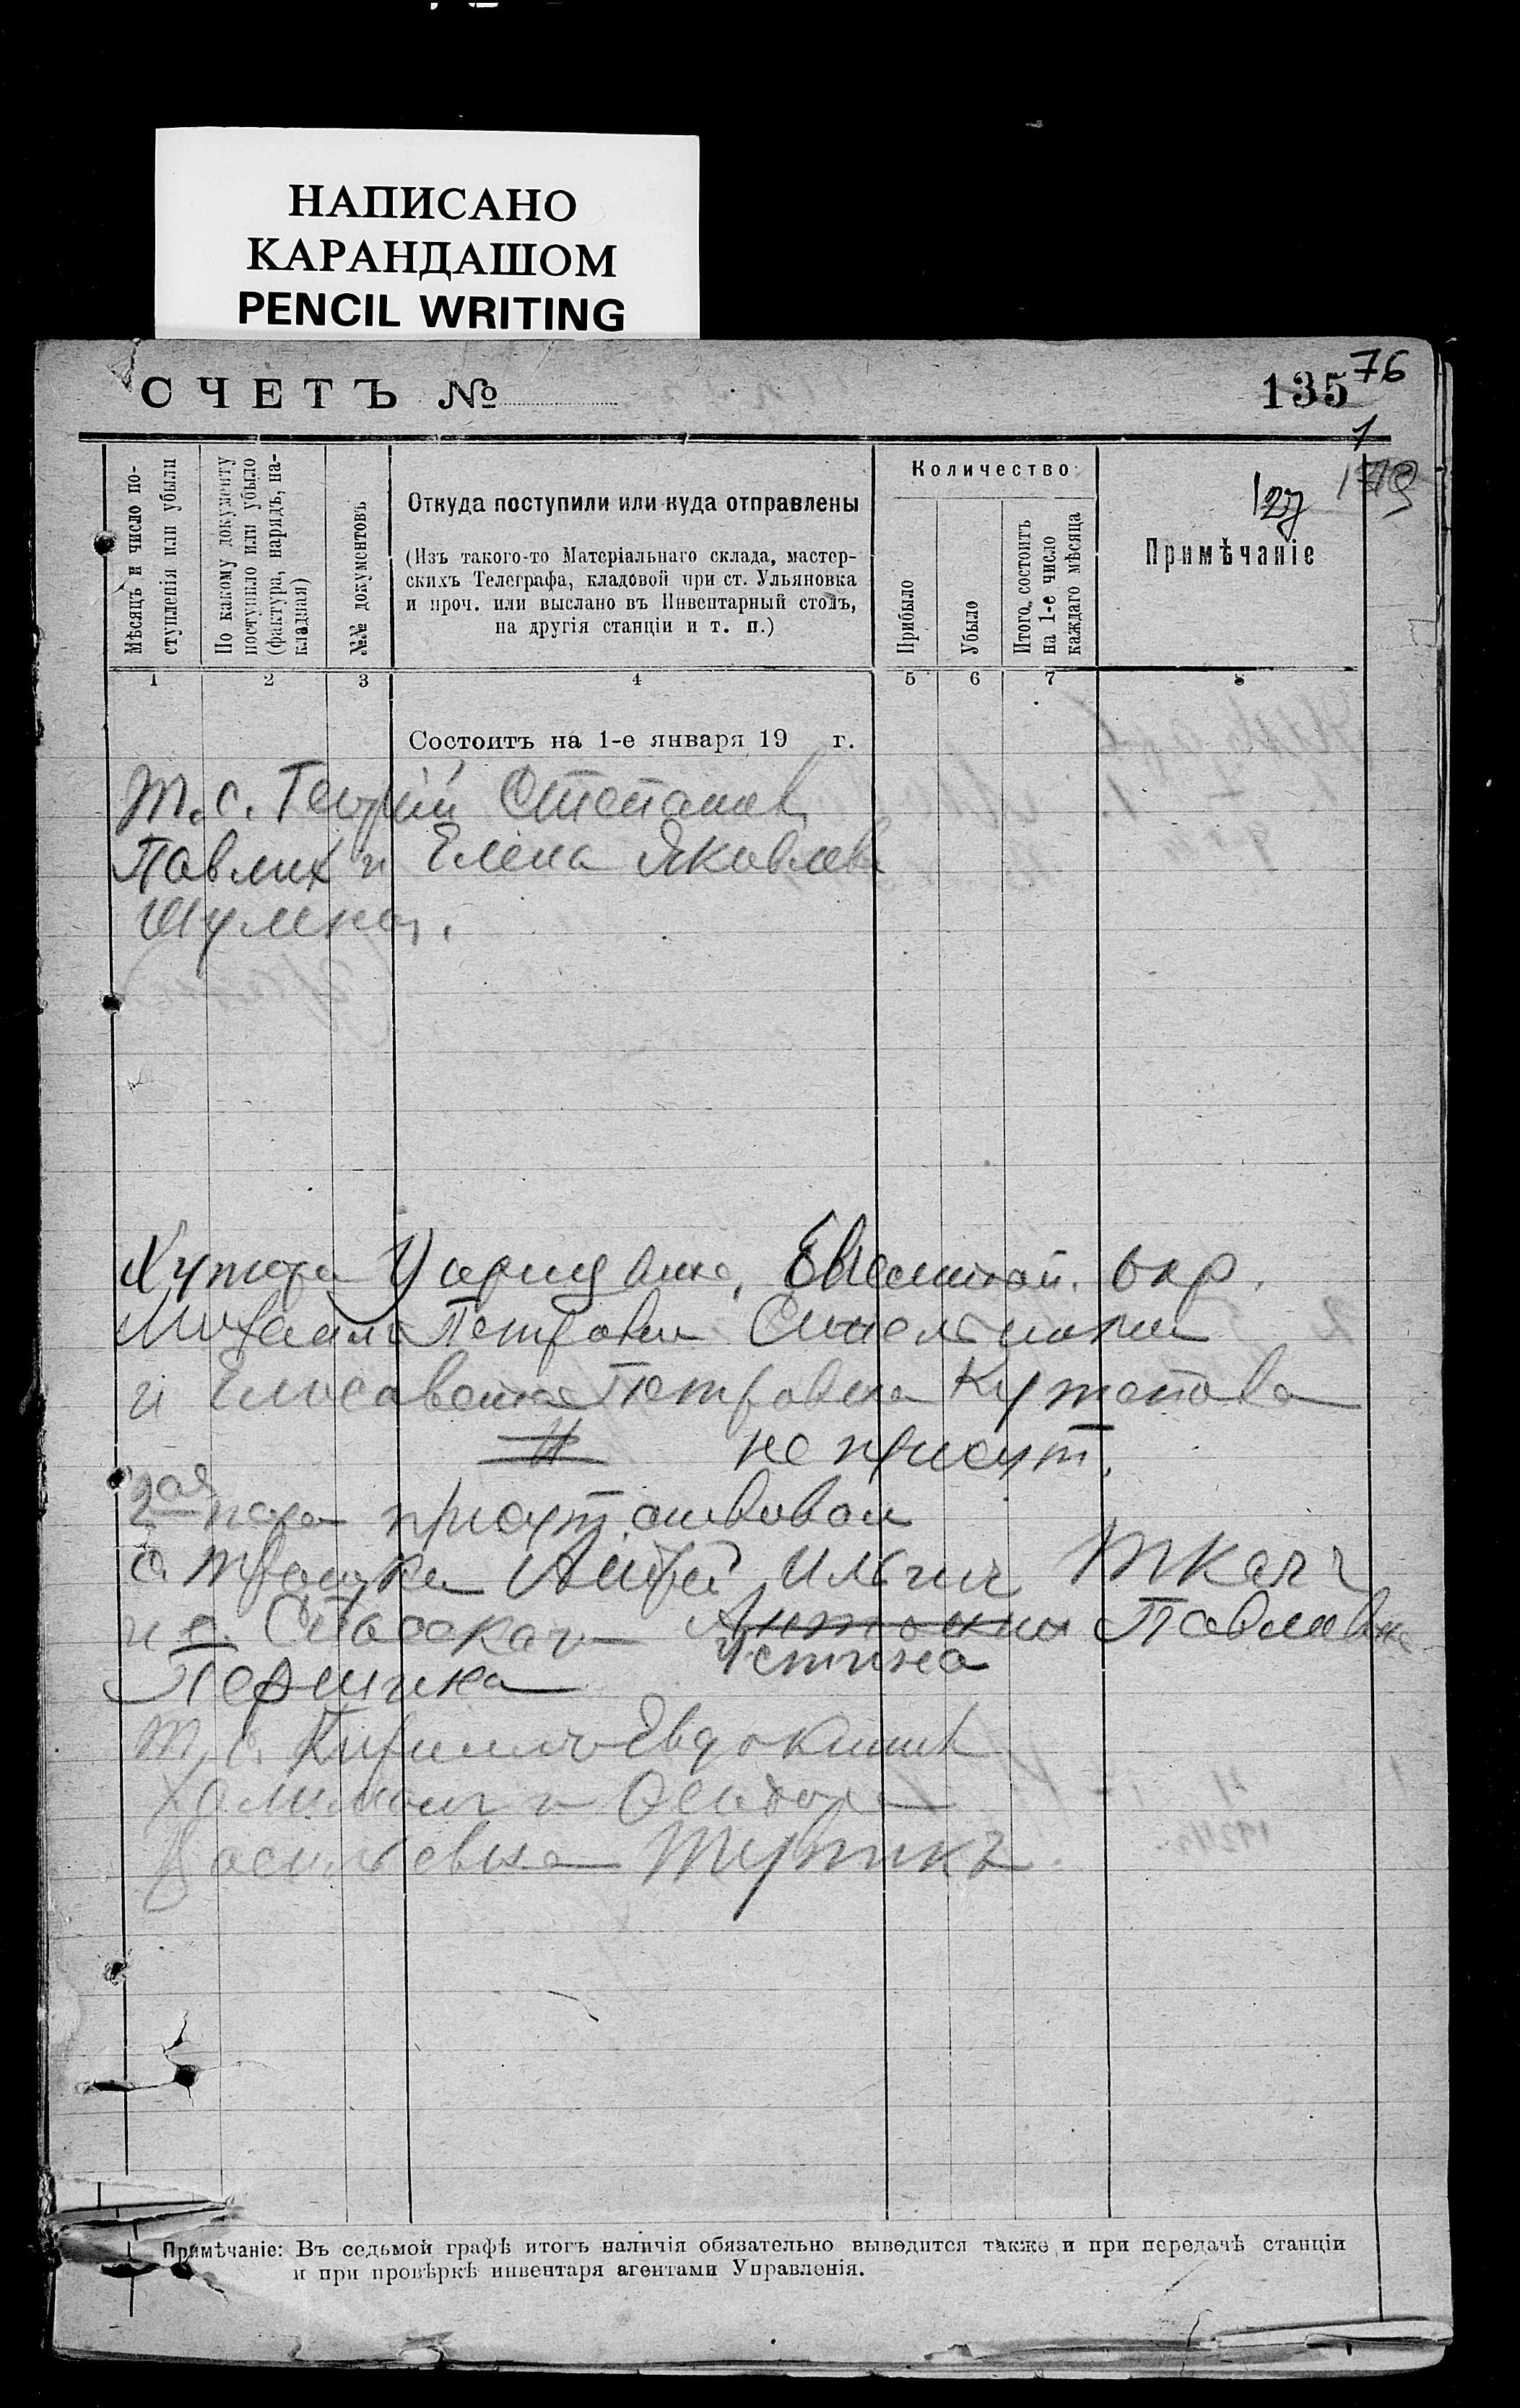 НАПИСАНО
КАРАНДАШОМ
PENCIL WRITING
СЧЕТЪ №
135
76
1
127
Мѣсяцъ и число по-
ступленія или убыли
По какому документу
поступило или убыло
(фактура, нарядъ, на-
кладная)
№№ документовъ
Откуда поступили или куда отправлены
(Изъ такого-то Матеріальнаго склада, мастер-
скихъ Телеграфа, кладовой при ст. Ульяновка
и проч. или выслано въ Инвентарный столъ,
на другія станціи и т. п.)
Количество
Прибыло
Убыло
Итого состоитъ
на 1-е число
каждаго мѣсяца
Примѣчаніе
1 2 3 4 5 6 7 8
Состоитъ на 1-е января 19 г.
Т.с. Георгій Степанов
Павлих и Елена Яковлева
Шулика.
Хутора Евситной. окр.
Михаил Петрович Синельников
и Елисавета Петровна Кутепова
и не присут.
2ая пара присутствовал
с. Ильич Ткач
и с. Спасская Антонина Павловна
Устина
Першина
Т.с. Кирилл Евдоким
и
Васильевна
Примѣчаніе: Въ седьмой графѣ итогъ наличія обязательно выводится также и при передачѣ станціи
и при провѣркѣ инвентаря агентами Управленія.